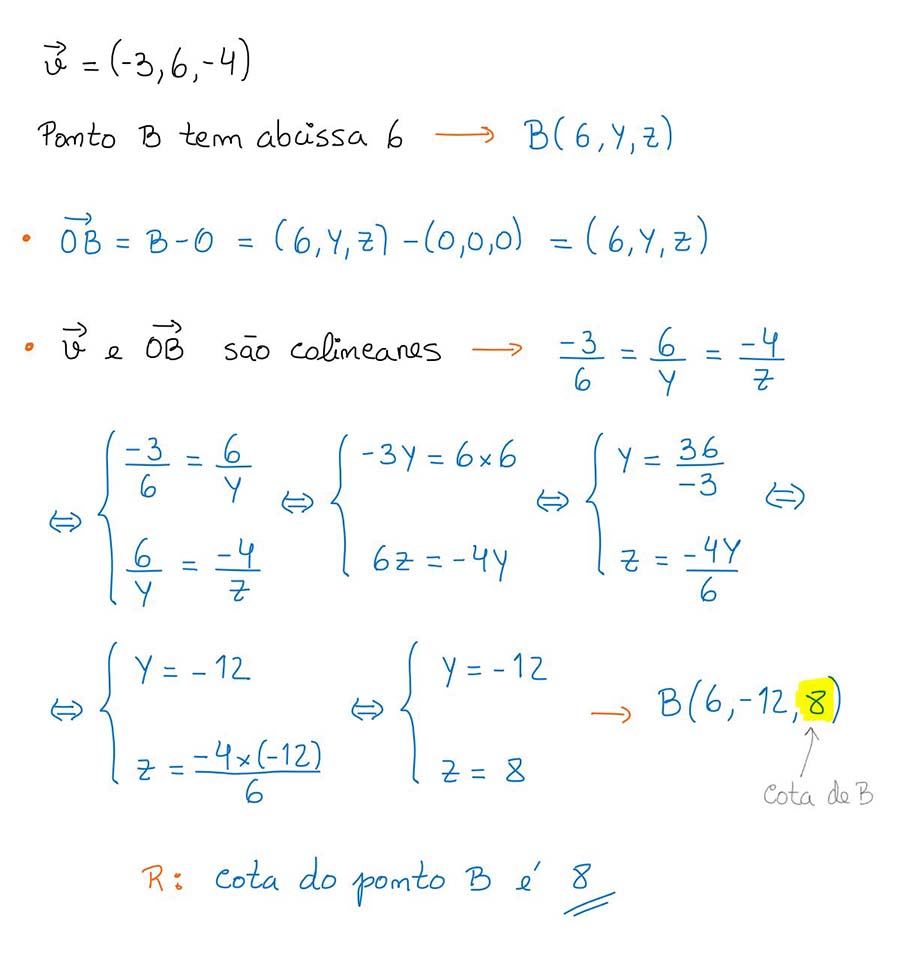 v⃗ = (-3, 6, -4)
Ponto B tem abcissa 6 → B(6, y, z)
• OB⃗ = B - O = (6, y, z) - (0,0,0) = (6, y, z)
• v⃗ e OB⃗ são colineares → -3/6 = 6/y = -4/z
⇔ { -3/6 = 6/y ; 6/y = -4/z ⇔ { -3y = 6×6 ; 6z = -4y ⇔ { y = 36/-3 ; z = -4y/6 ⇔
⇔ { y = -12 ; z = -4×(-12)/6 ⇔ { y = -12 ; z = 8 → B(6, -12, 8)
cota de B
R: cota do ponto B é 8